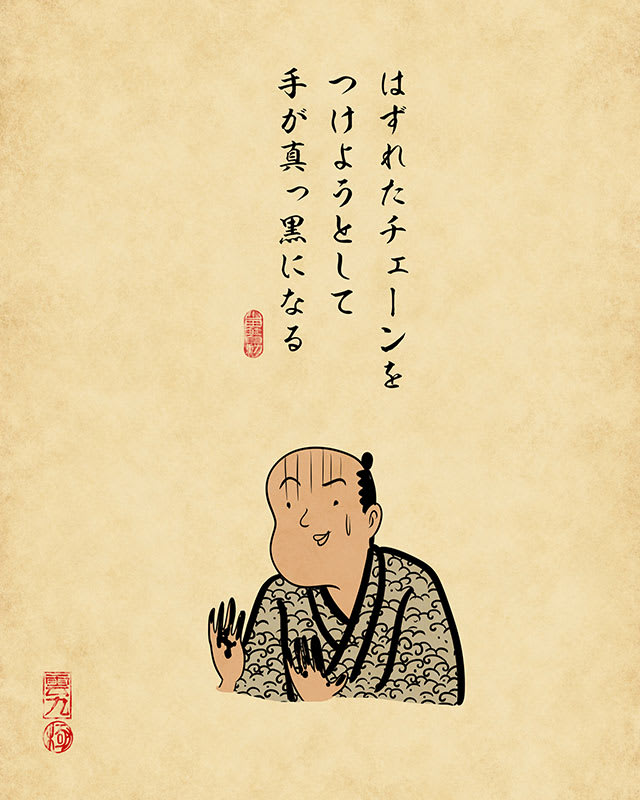 はずれたチェーンを
つけようとして
手が真っ黒になる